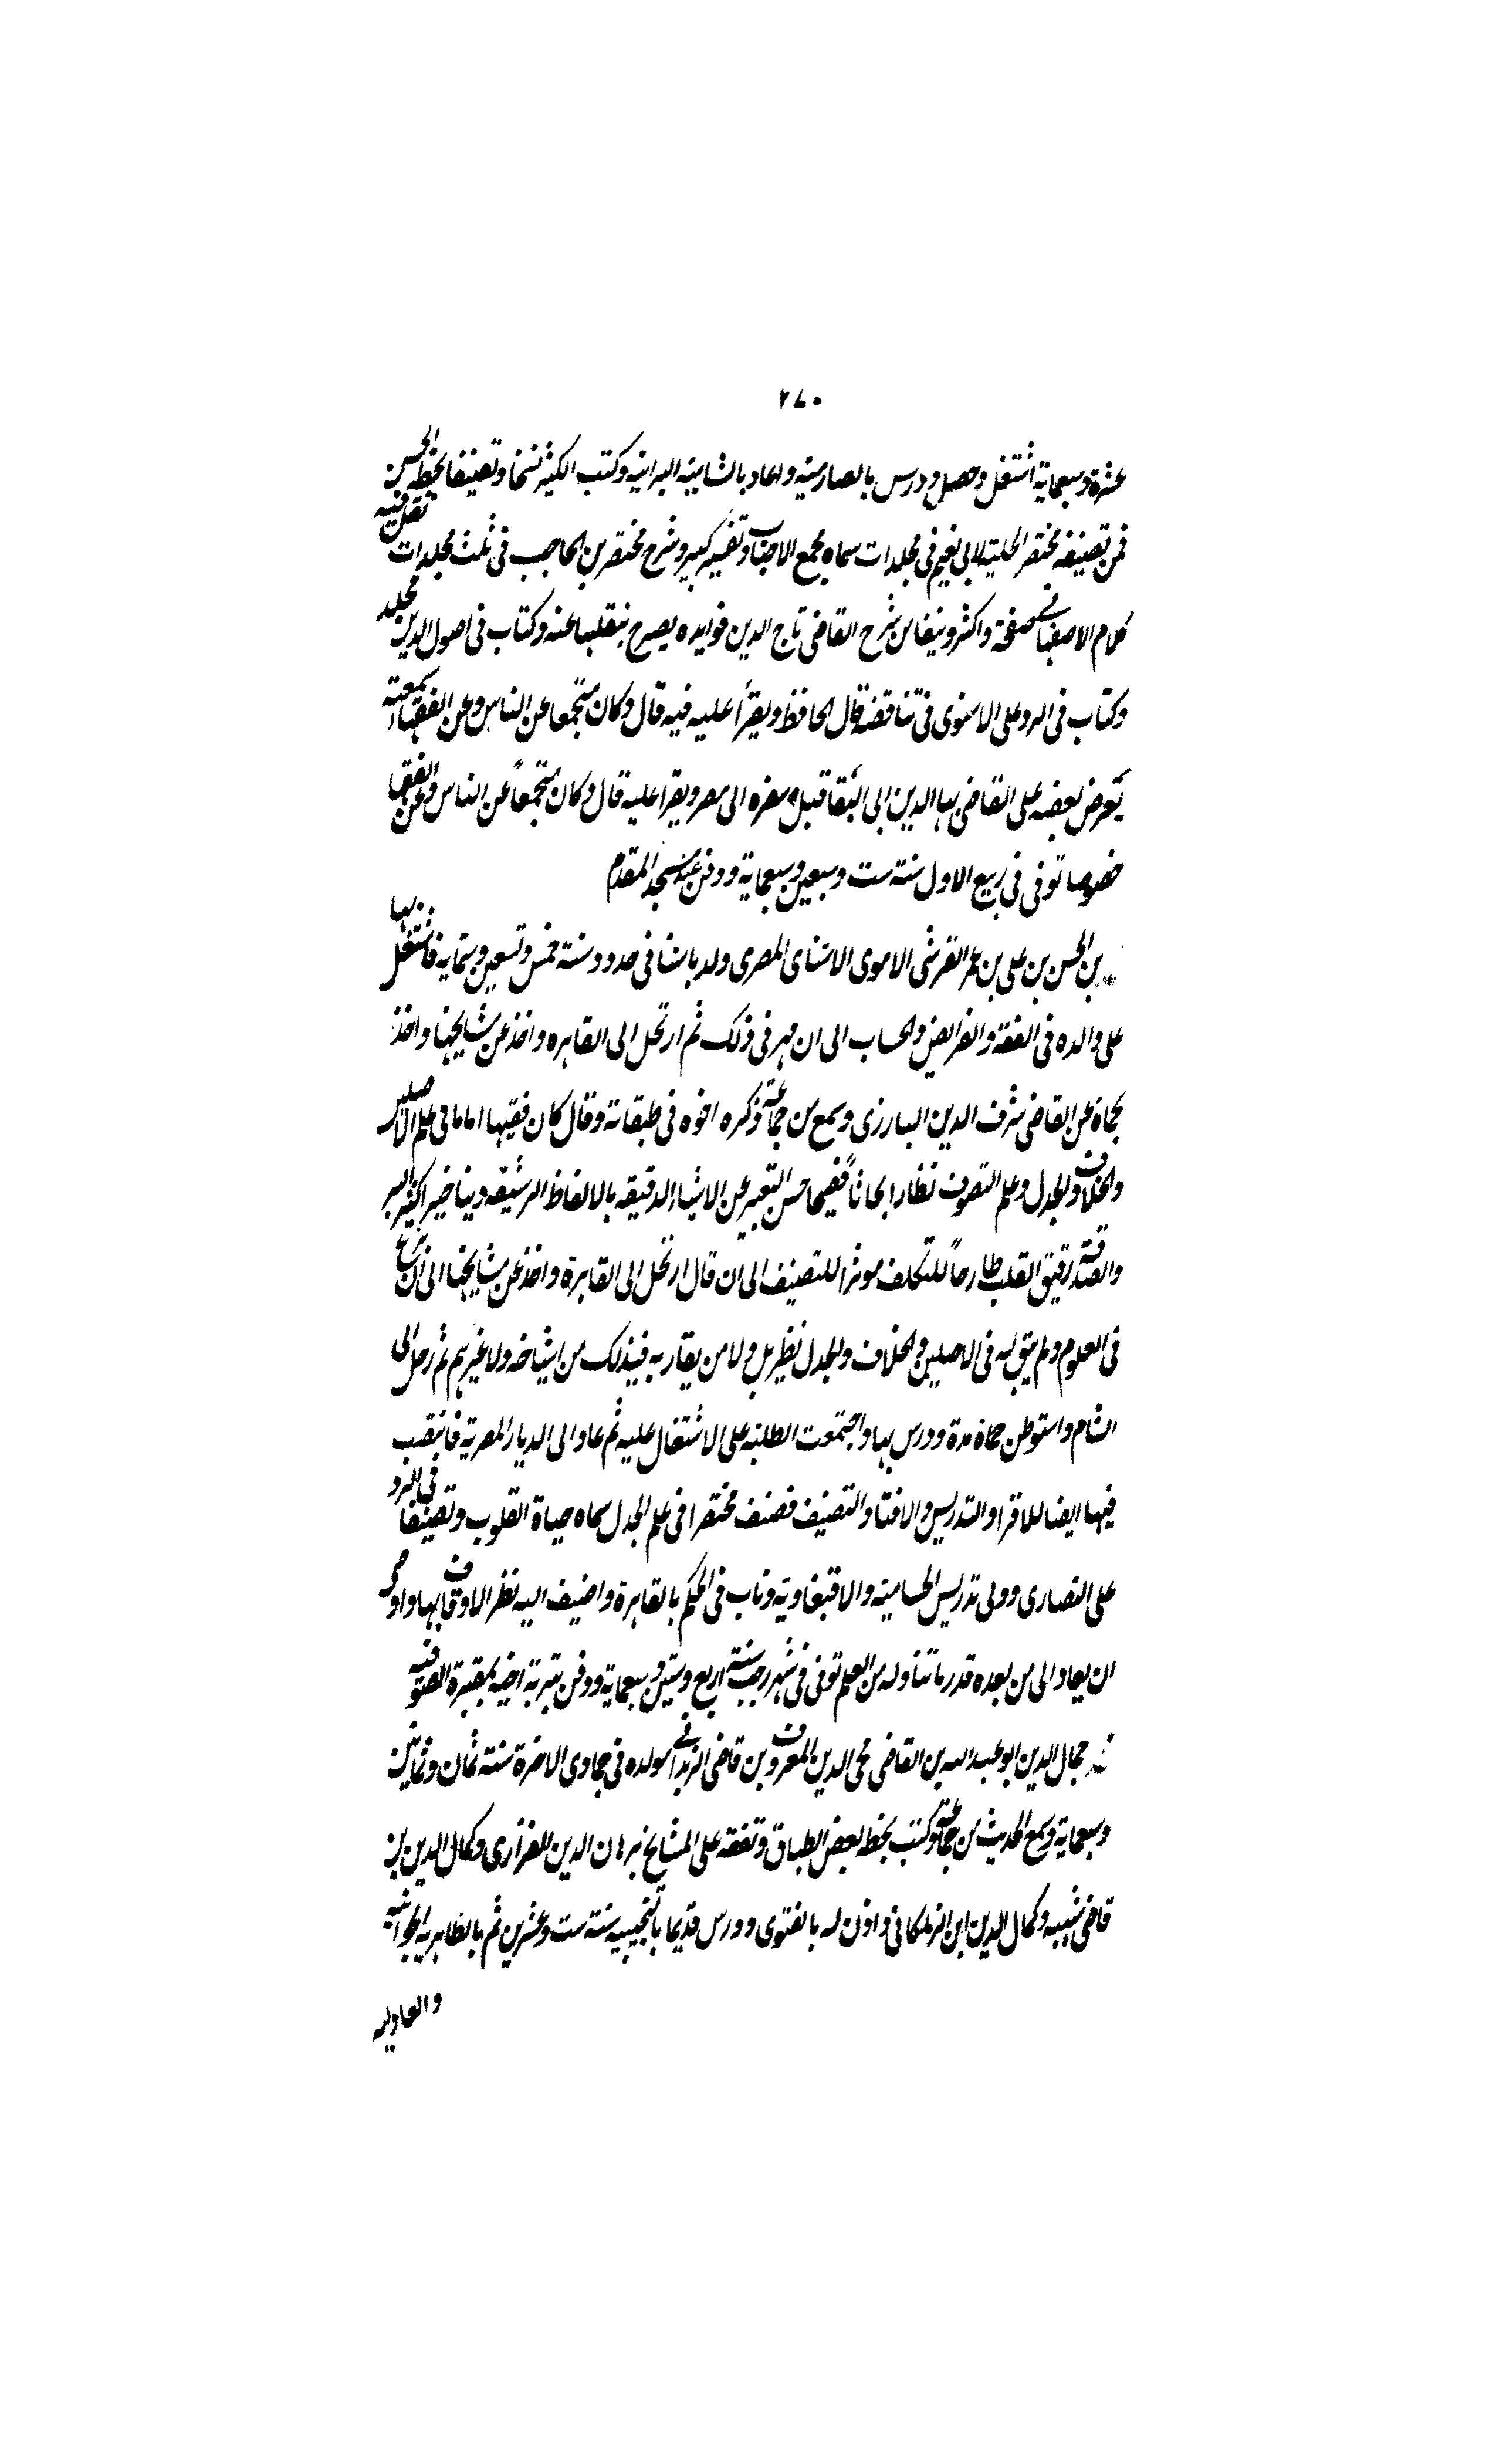 ٢٧٠
عشرة وسبعماية اشتغل وحصل ودرس بالصارمية واعاد بالشامية البرانية وكتب الكثير نسخا وتصنيفا بخطه الحسن
فمن تصنيفه مختصر الحلية لابي نعيم في مجلدات سماه مجمع الاحباب وتفسير كبير وشرح مختصر بن الحاجب في ثلث مجلدات نقل فيه
كلام الاصفهاني صفحة واكثر وينقل من شرح القاضي تاج الدين فوايده يصرح بنقلها عنه وكتاب في اصول الدين مجلد
وكتاب في الرد على الاسنوي في تناقضه قال الحافظ ويقرأ عليه فيه قال وكان منجمعا عن الناس وعن الفقهاء
يعرض بعضه على القاضي بهاالدين ابي البقا قبل سفره الى مصر ويقرا عليه قال وكان منجمعاً عن الناس وعن الفقها
خصوصا توفي في ربيع الاول سنة ست وسبعين وسبعماية ودفن عند مسجد المقدم
بن الحسن بن علي بن عمر القرشي الاموي الاسناى المصري ولد باسنا في حدود سنة خمس وتسعين وستماية فاشتغل بها
على والده في الفقه والفرائض والحساب الى ان مهر في ذلك ثم ارتحل الى القاهره واخذ عن مشايخها واخذ
بحماة عن القاضي شرف الدين البارزي وسمع من جماعة ذكره اخوه في طبقاته وقال كان فقيها اماما في علم الاصلين
والخلاف والجدل وعلم التصوف نظارا بحاثاً فصيحا حسن التعبير عن الاشياء الدقيقه بالالفاظ الرشيقه دينا خيرا كثير البر
والصدقة رقيق القلب طارحاً للتكلف موثرا للتصنيف الى ان قال ارتحل الى القاهرة واخذ عن مشايخها الى ان برع
في العلوم ولم يبق له في الاصلين والخلاف والجدل نظير بل ولا من يقاربه في ذلك من اشياخه ولا غيرهم ثم رحل الى
الشام واستوطن حماة مدة ودرس بها واجتمعت الطلبة على الاشتغال عليه ثم عاد الى الديار المصرية فانتصب
فيها ايضا للاقرا والتدريس والافتا والتصنيف فصنف مختصرا في علم الجدل سماه حياة القلوب وتصنيفا في الرد
على النصارى وولي تدريس الحسامية والاقبغاوية وناب في الحكم بالقاهرة واضيف اليه نظر الاوقاف بها واوصى
ان يعاد الى من بعده قدر ما تناوله من المعلوم توفي في شهر رجب سنة اربع وستين وسبعماية ودفن بتربة اخيه بمقبرة الصوفيه
جمال الدين ابو عبد الله بن القاضي محي الدين المعروف بن قاضي الزبداني مولده في جمادى الاخرة سنة ثمان وثمانين
وسبعماية وسمع الحديث من جماعة وكتب بخطه بعض الطباق وتفقه على المشايخ برهان الدين الفزاري وكمال الدين بن
قاضي شهبه وكمال الدين ابن الزملكاني واذن له بالفتوى ودرس قديما بالنجيبيه سنة ست وعشرين ثم بالظاهرية الجوانيه
والعادليه